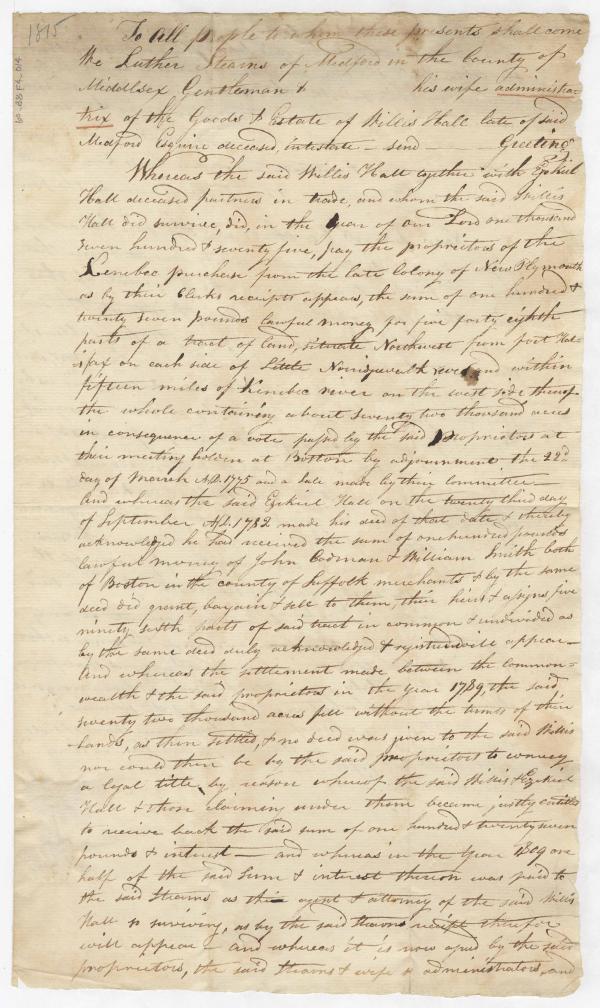 1815
60.-88 F4.014
To all people to whom these presents shall come
We Luther Stearns of Medford in the County of
Middlesex Gentleman & his wife administra-
trix of the Goods & Estate of Willis Hall late of said
Medford Esquire deceased, intestate — send — Greeting
Whereas the said Willis Hall together with Ezekiel
Hall deceased partners in trade, and whom the said Willis
Hall did survive, did, in the year of our Lord one thousand
seven hundred & seventy five, pay the proprietors of the
Kenebec purchase from the late Colony of New Plymouth
as by their Clerks receipts appears, the sum of one hundred &
twenty seven pounds lawful money for five forty eighth
parts of a tract of land, situate Northwest from fort Hal-
ifax on each side of Little Norridgewalk river and within
fifteen miles of Kinebec river on the west side thereof
the whole containing about seventy two thousand acres
in consequence of a vote passed by the said Proprietors at
their meeting holden at Boston by adjournment the 22d
day of March AD. 1775 and a sale made by their committee—
And whereas the said Ezekiel Hall on the twenty third day
of September AD. 1782 made his deed of that date & thereby
acknowledged he had received the sum of one hundred pounds
lawful money of John Codman & William Smith both
of Boston in the county of Suffolk merchants & by the same
deed did grant, bargain & sell to them, their heirs & assigns five
ninety sixth parts of said tract in common & undivided as
by the same deed duly acknowledged & registered will appear—
And whereas the settlement made between the common-
wealth & the said proprietors in the year 1789, the said
seventy two thousand acres fell without the limits of their
lands, as then settled, & no deed was given to the said Willis
nor could there be by the said proprietors to convey
a legal title, by reason whereof the said Willis & Ezekiel
Hall & those claiming under them became justly entitled
to receive back the said sum of one hundred & twenty seven
pounds & interest — and whereas in the year 1809 one
half of the said sum & interest thereon was paid to
the said Stearns as the agent & attorney of the said Willis
Hall so surviving, as by the said Stearns receipt therefor
will appear — and whereas it is now agreed by the said
proprietors, the said Stearns & wife as administrators, and